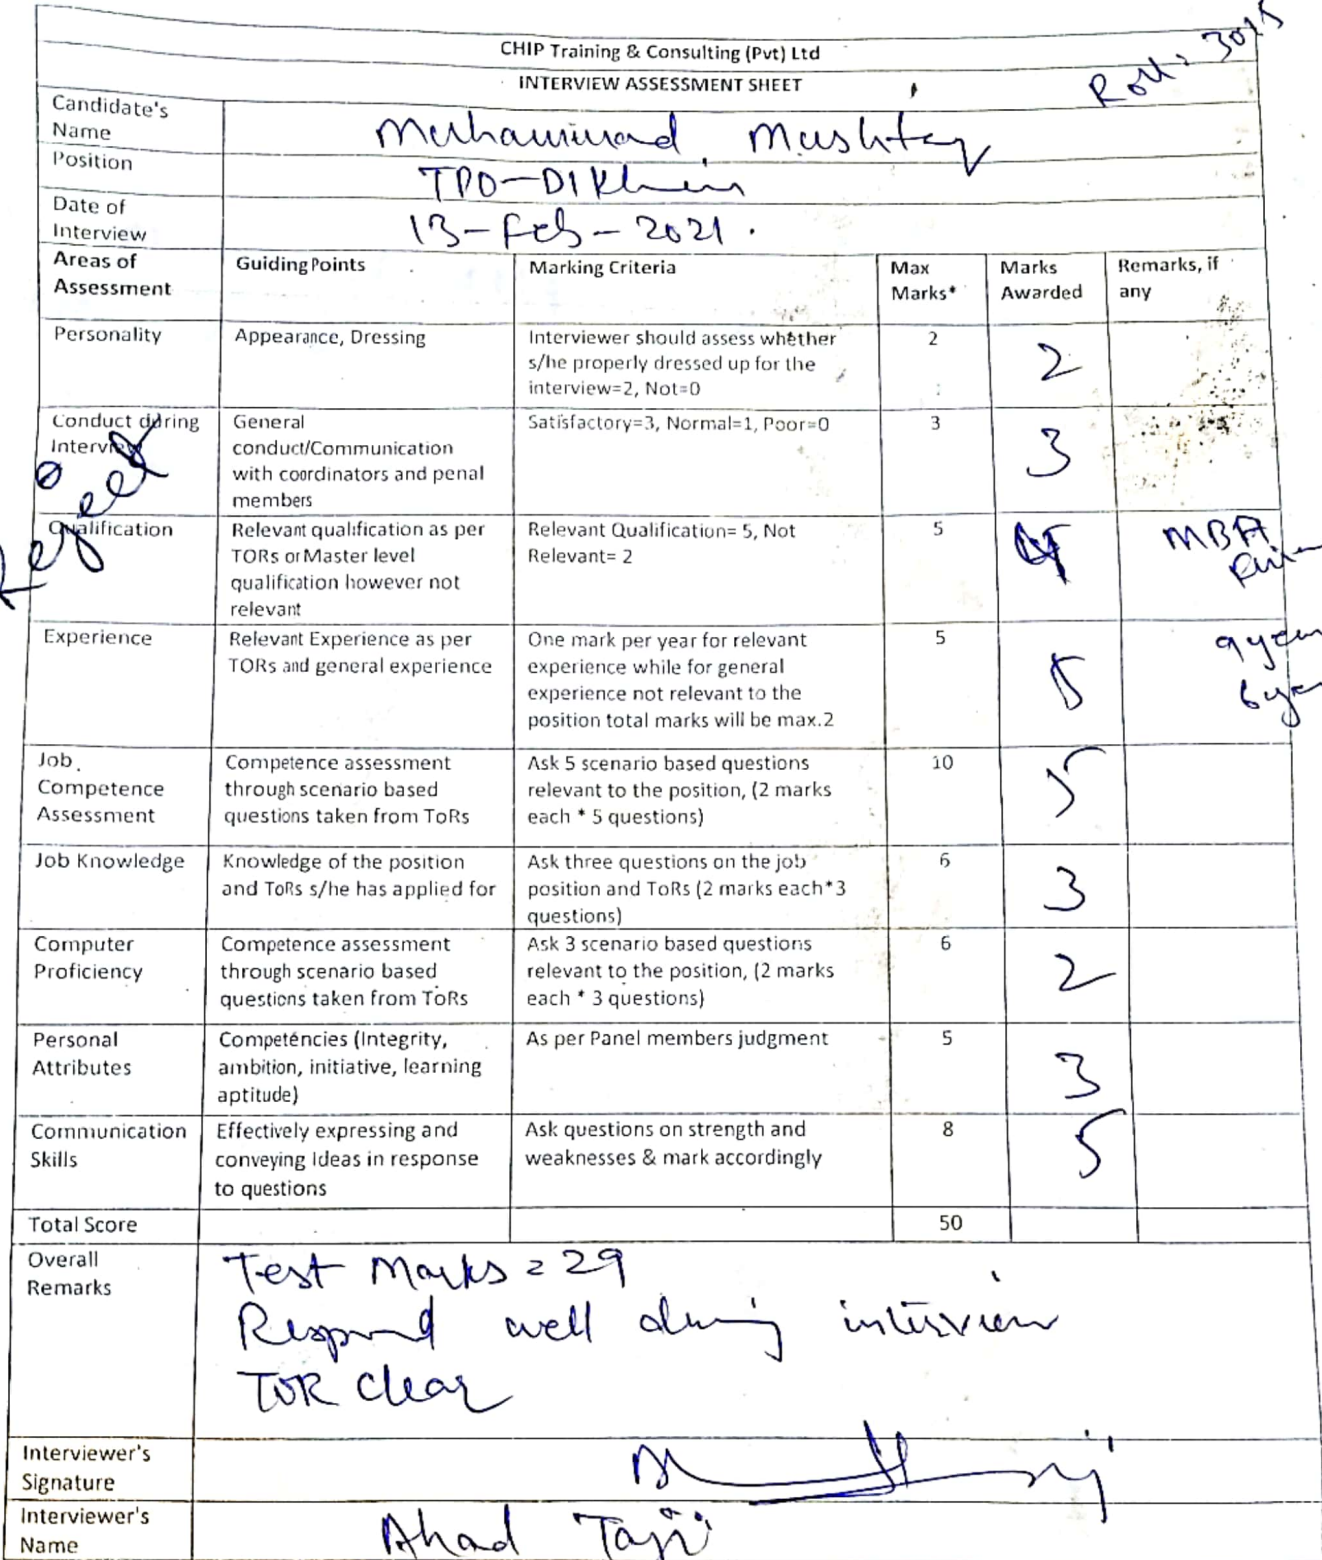 Roll: 3015
CHIP Training & Consulting (Pvt) Ltd
INTERVIEW ASSESSMENT SHEET
Candidate's
Name
Muhammad Mushtaq
Position
TPO-DIKhan
Date of
Interview
13-Feb-2021.
Areas of
Assessment
Guiding Points
Marking Criteria
Max
Marks*
Marks
Awarded
Remarks, if
any
Personality
Appearance, Dressing
Interviewer should assess whether
s/he properly dressed up for the
interview=2, Not=0
2
2
Conduct during
Interview
General
conduct/Communication
with coordinators and penal
members
Satisfactory=3, Normal=1, Poor=0
3
3
Reject
Qualification
Relevant qualification as per
TORs or Master level
qualification however not
relevant
Relevant Qualification= 5, Not
Relevant= 2
5
MBA
Experience
Relevant Experience as per
TORs and general experience
One mark per year for relevant
experience while for general
experience not relevant to the
position total marks will be max.2
5
5
9 year
6 year
Job
Competence
Assessment
Competence assessment
through scenario based
questions taken from ToRs
Ask 5 scenario based questions
relevant to the position, (2 marks
each * 5 questions)
10
5
Job Knowledge
Knowledge of the position
and ToRs s/he has applied for
Ask three questions on the job
position and ToRs (2 marks each*3
questions)
6
3
Computer
Proficiency
Competence assessment
through scenario based
questions taken from ToRs
Ask 3 scenario based questions
relevant to the position, (2 marks
each * 3 questions)
6
2
Personal
Attributes
Competencies (Integrity,
ambition, initiative, learning
aptitude)
As per Panel members judgment
5
3
Communication
Skills
Effectively expressing and
conveying Ideas in response
to questions
Ask questions on strength and
weaknesses & mark accordingly
8
5
Total Score
50
Overall
Remarks
Test Marks = 29
Respond well during interview
TOR clear
Interviewer's
Signature
Interviewer's
Name
Ahad